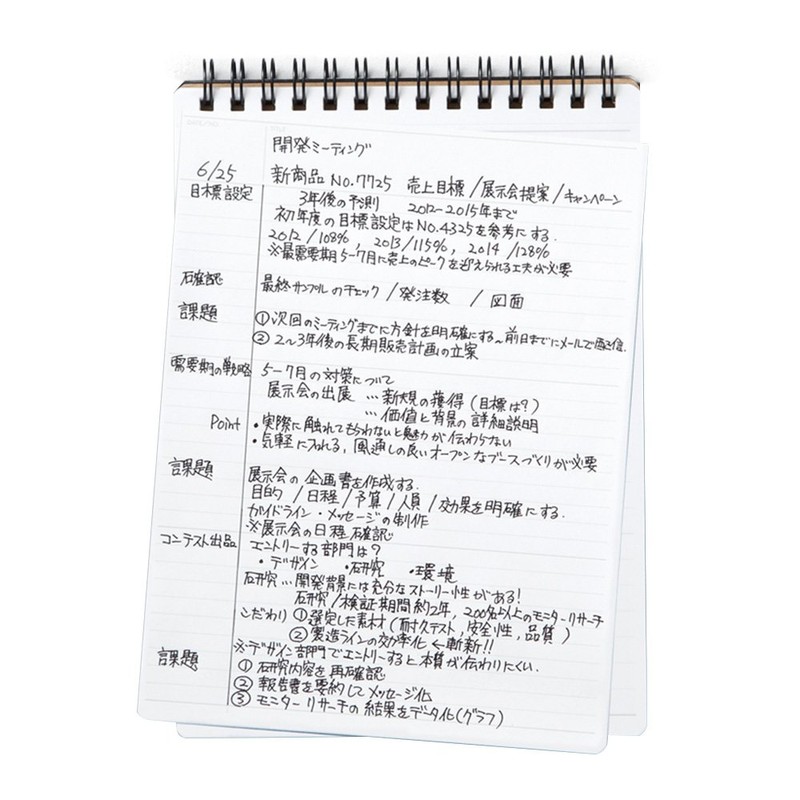 開発ミーティング
6/25 新商品 No.7725 売上目標/展示会提案/キャンペーン
目標設定 3年後の予測 2012-2015年まで
初年度の目標設定はNo.4325を参考にする.
2012/108%, 2013/115%, 2014/128%
※最需要期5-7月に売上のピークを迎えられる工夫が必要
確認 最終サンプルのチェック/発注数 /図面
課題 ①次回のミーティングまでに方針を明確にする~前日までにメールで
②2~3年後の長期販売計画の立案
需要期の戦略 5-7月の対策について
展示会の出展 …新規の獲得(目標は?)
…価値と背景の詳細説明
Point ・実際に触れてもらわないと魅力が伝わらない
・気軽に入れる,風通しの良いオープンなブースづくりが必要
課題 展示会の企画書を作成する.
目的/日程/予算/人員/効果を明確にする.
ガイドライン・メッセージの制作
※展示会の日程確認
コンテスト出品 エントリーする部門は?
・デザイン ・研究 ・環境
研究…開発背景には充分なストーリー性がある!
研究/検証期間約2年,200名以上のモニターリサーチ
こだわり ①選定した素材(耐久テスト,安全性,品質)
②製造ラインの効率化←斬新!!
※デザイン部門でエントリーすると本質が伝わりにくい.
課題 ①研究内容を再確認
②報告書を要約してメッセージ化
③モニターリサーチの結果をデータ化(グラフ)